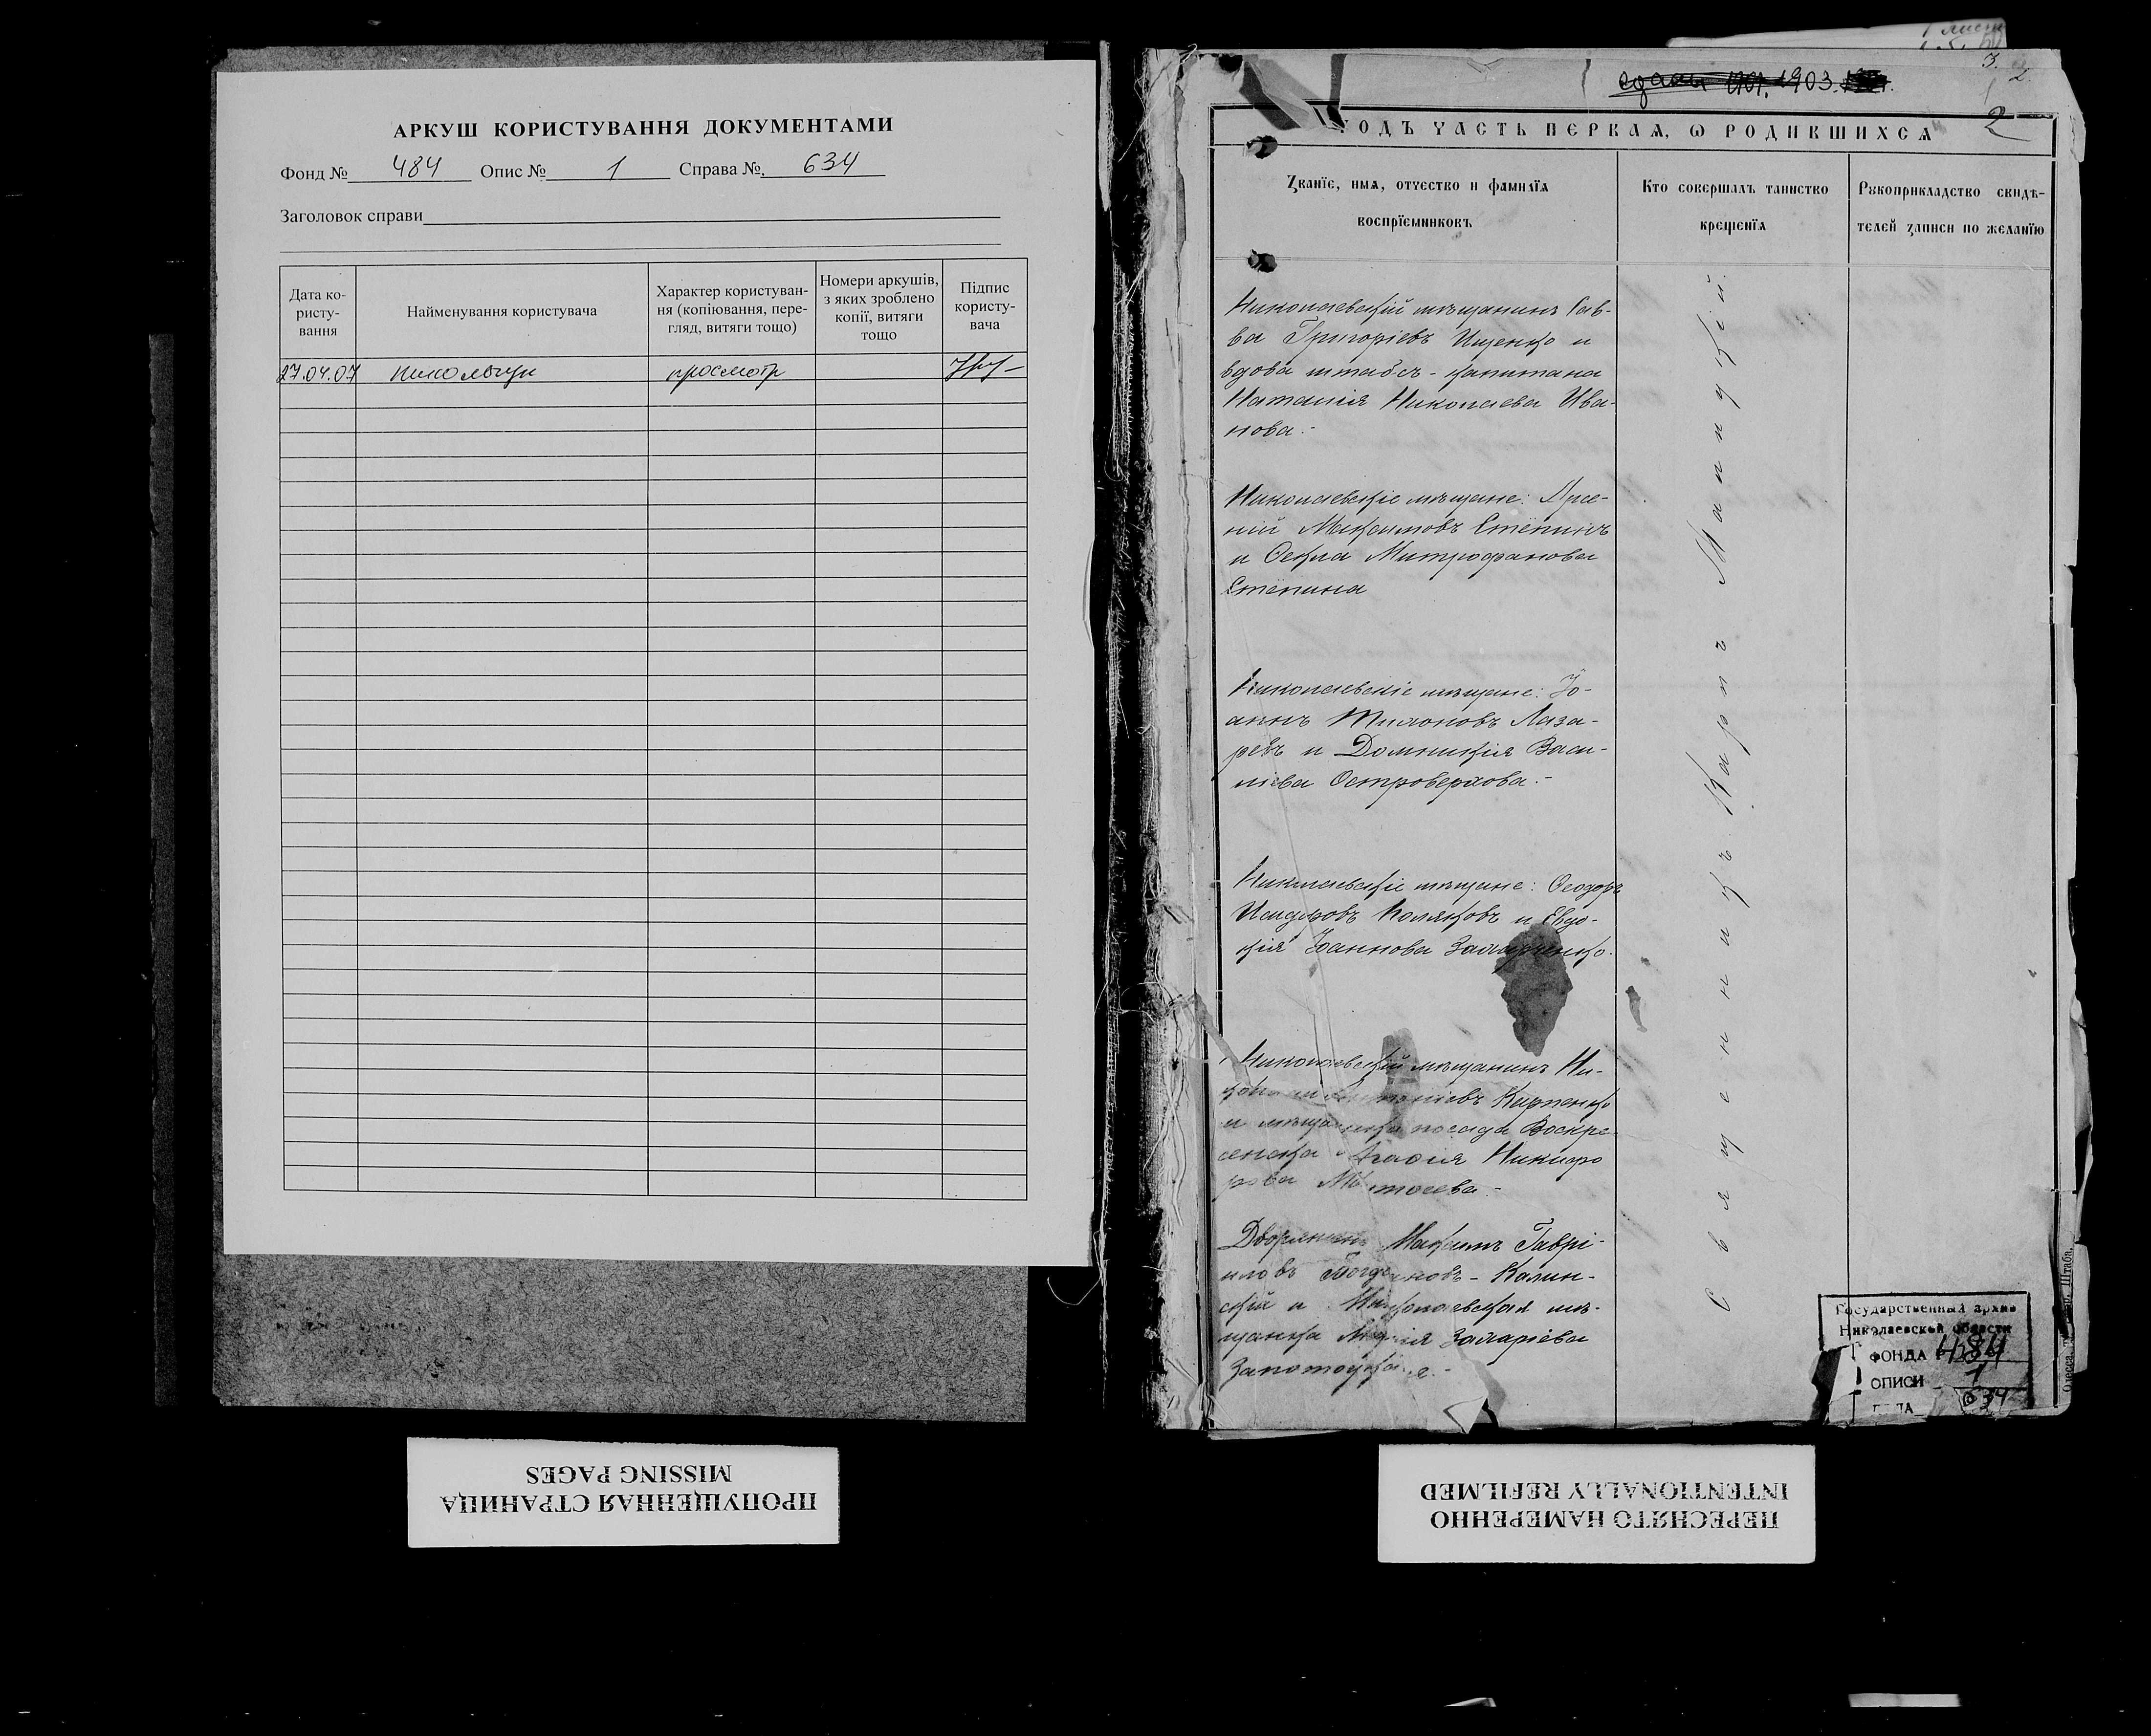 АРКУШ КОРИСТУВАННЯ ДОКУМЕНТАМИ
Фонд № 484 Опис № 1 Справа № 634
Заголовок справи
Дата ко-
ристу-
вання
Найменування користувача
Характер користуван-
ня (копіювання, пере-
гляд, витяги тощо)
Номери аркушів,
з яких зроблено
копії, витяги
тощо
Підпис
користу-
вача
27.04.07 просмотр
ПРОПУЩЕННАЯ СТРАНИЦА
MISSING PAGES
1903
3.
2
ГОДЪ ЧАСТЬ ПЕРВАЯ, Ѡ РОДИВШИХСЯ
Званїе, имя, отчество и фамилїя
воспрїемниковъ
Кто совершалъ таинство
крещенїя
Рукоприкладство свидѣ-
телей записи по желанїю
Николаевскій мѣщанинъ Сав-
ва Григоріевъ Ищенко и
вдова штабсъ-капитана
Наталія Николаева Ива-
нова.-
Николаевскіе мѣщане: Арсе-
ній Максимовъ Стёпинъ
и Ѳекла Митрофанова
Стёпина
Николаевскіе мѣщане: Іо-
аннъ Тихоновъ Лаза-
ревъ и Домникія Васи-
ліева Островерхова.-
Николаевскіе мѣщане: Ѳеодоръ
Исидоровъ Поляковъ и Евдо-
кія Іоаннова Захарченко.
Николаевскій мѣщанинъ Ни-
Карпенко
и мѣщанка посада Воскре-
сенска Агаѳія Никифо
рова
Дворянинъ Максимъ Гаври-
иловъ Богдановъ-Калин-
скій и Николаевская мѣ-
щанка Марія Захаріева
Священникъ Карпъ
Государственный архив
Николаевской области
ФОНДА 484
ОПИСИ 1
634
Одесса. Штаба.
ПЕРЕСНЯТО НАМЕРЕННО
INTENTIONALLY REFILMED